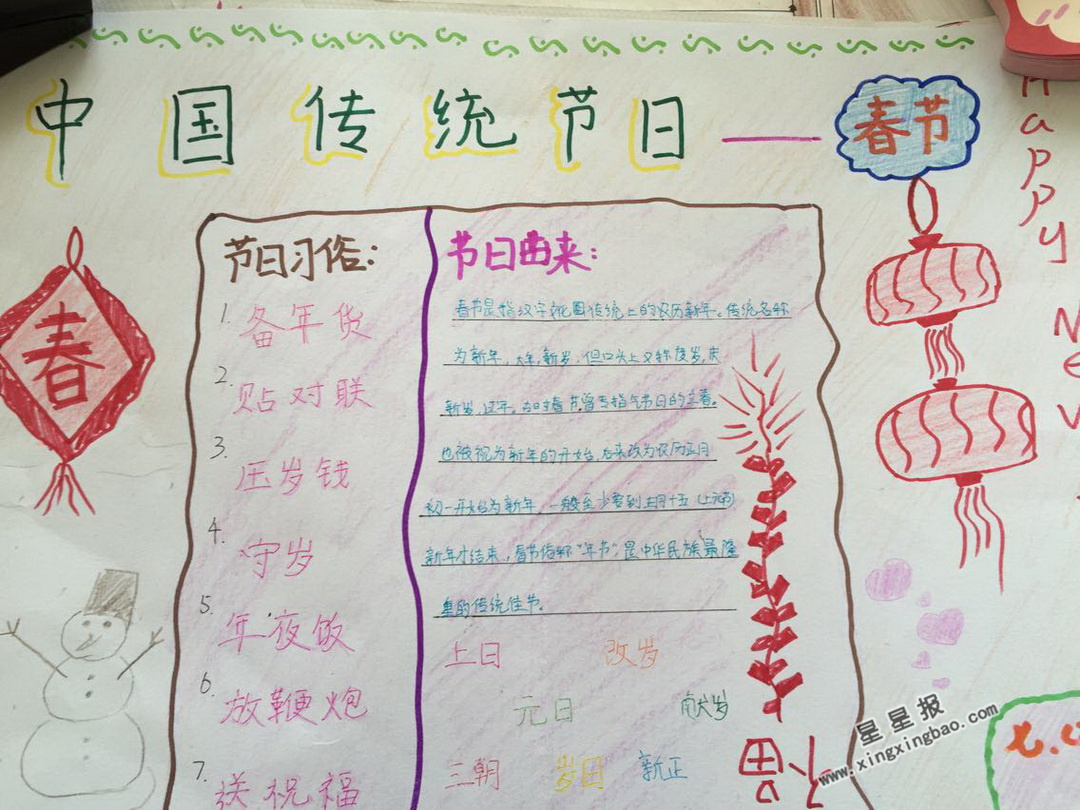 中国传统节日——春节
Happy
节日习俗：
1. 备年货
2. 贴对联
3. 压岁钱
4. 守岁
5. 年夜饭
6. 放鞭炮
7. 送祝福
节日由来：
春节是指汉字文化圈传统上的农历新年。传统名称
为新年，大年，新岁，但口头上又称度岁，庆
新岁，过年。古时春节曾专指节气的立春。
也被视为新年的开始，后来改为农历正月
初一开始为新年，一般至少要到正月十五（上元节）
新年才结束，春节俗称“年节”，是中华民族最隆
重的传统佳节。
上日 改岁
元日 献岁
三朝 岁旦 新正
春
福
星星报
www.xingxingbao.com